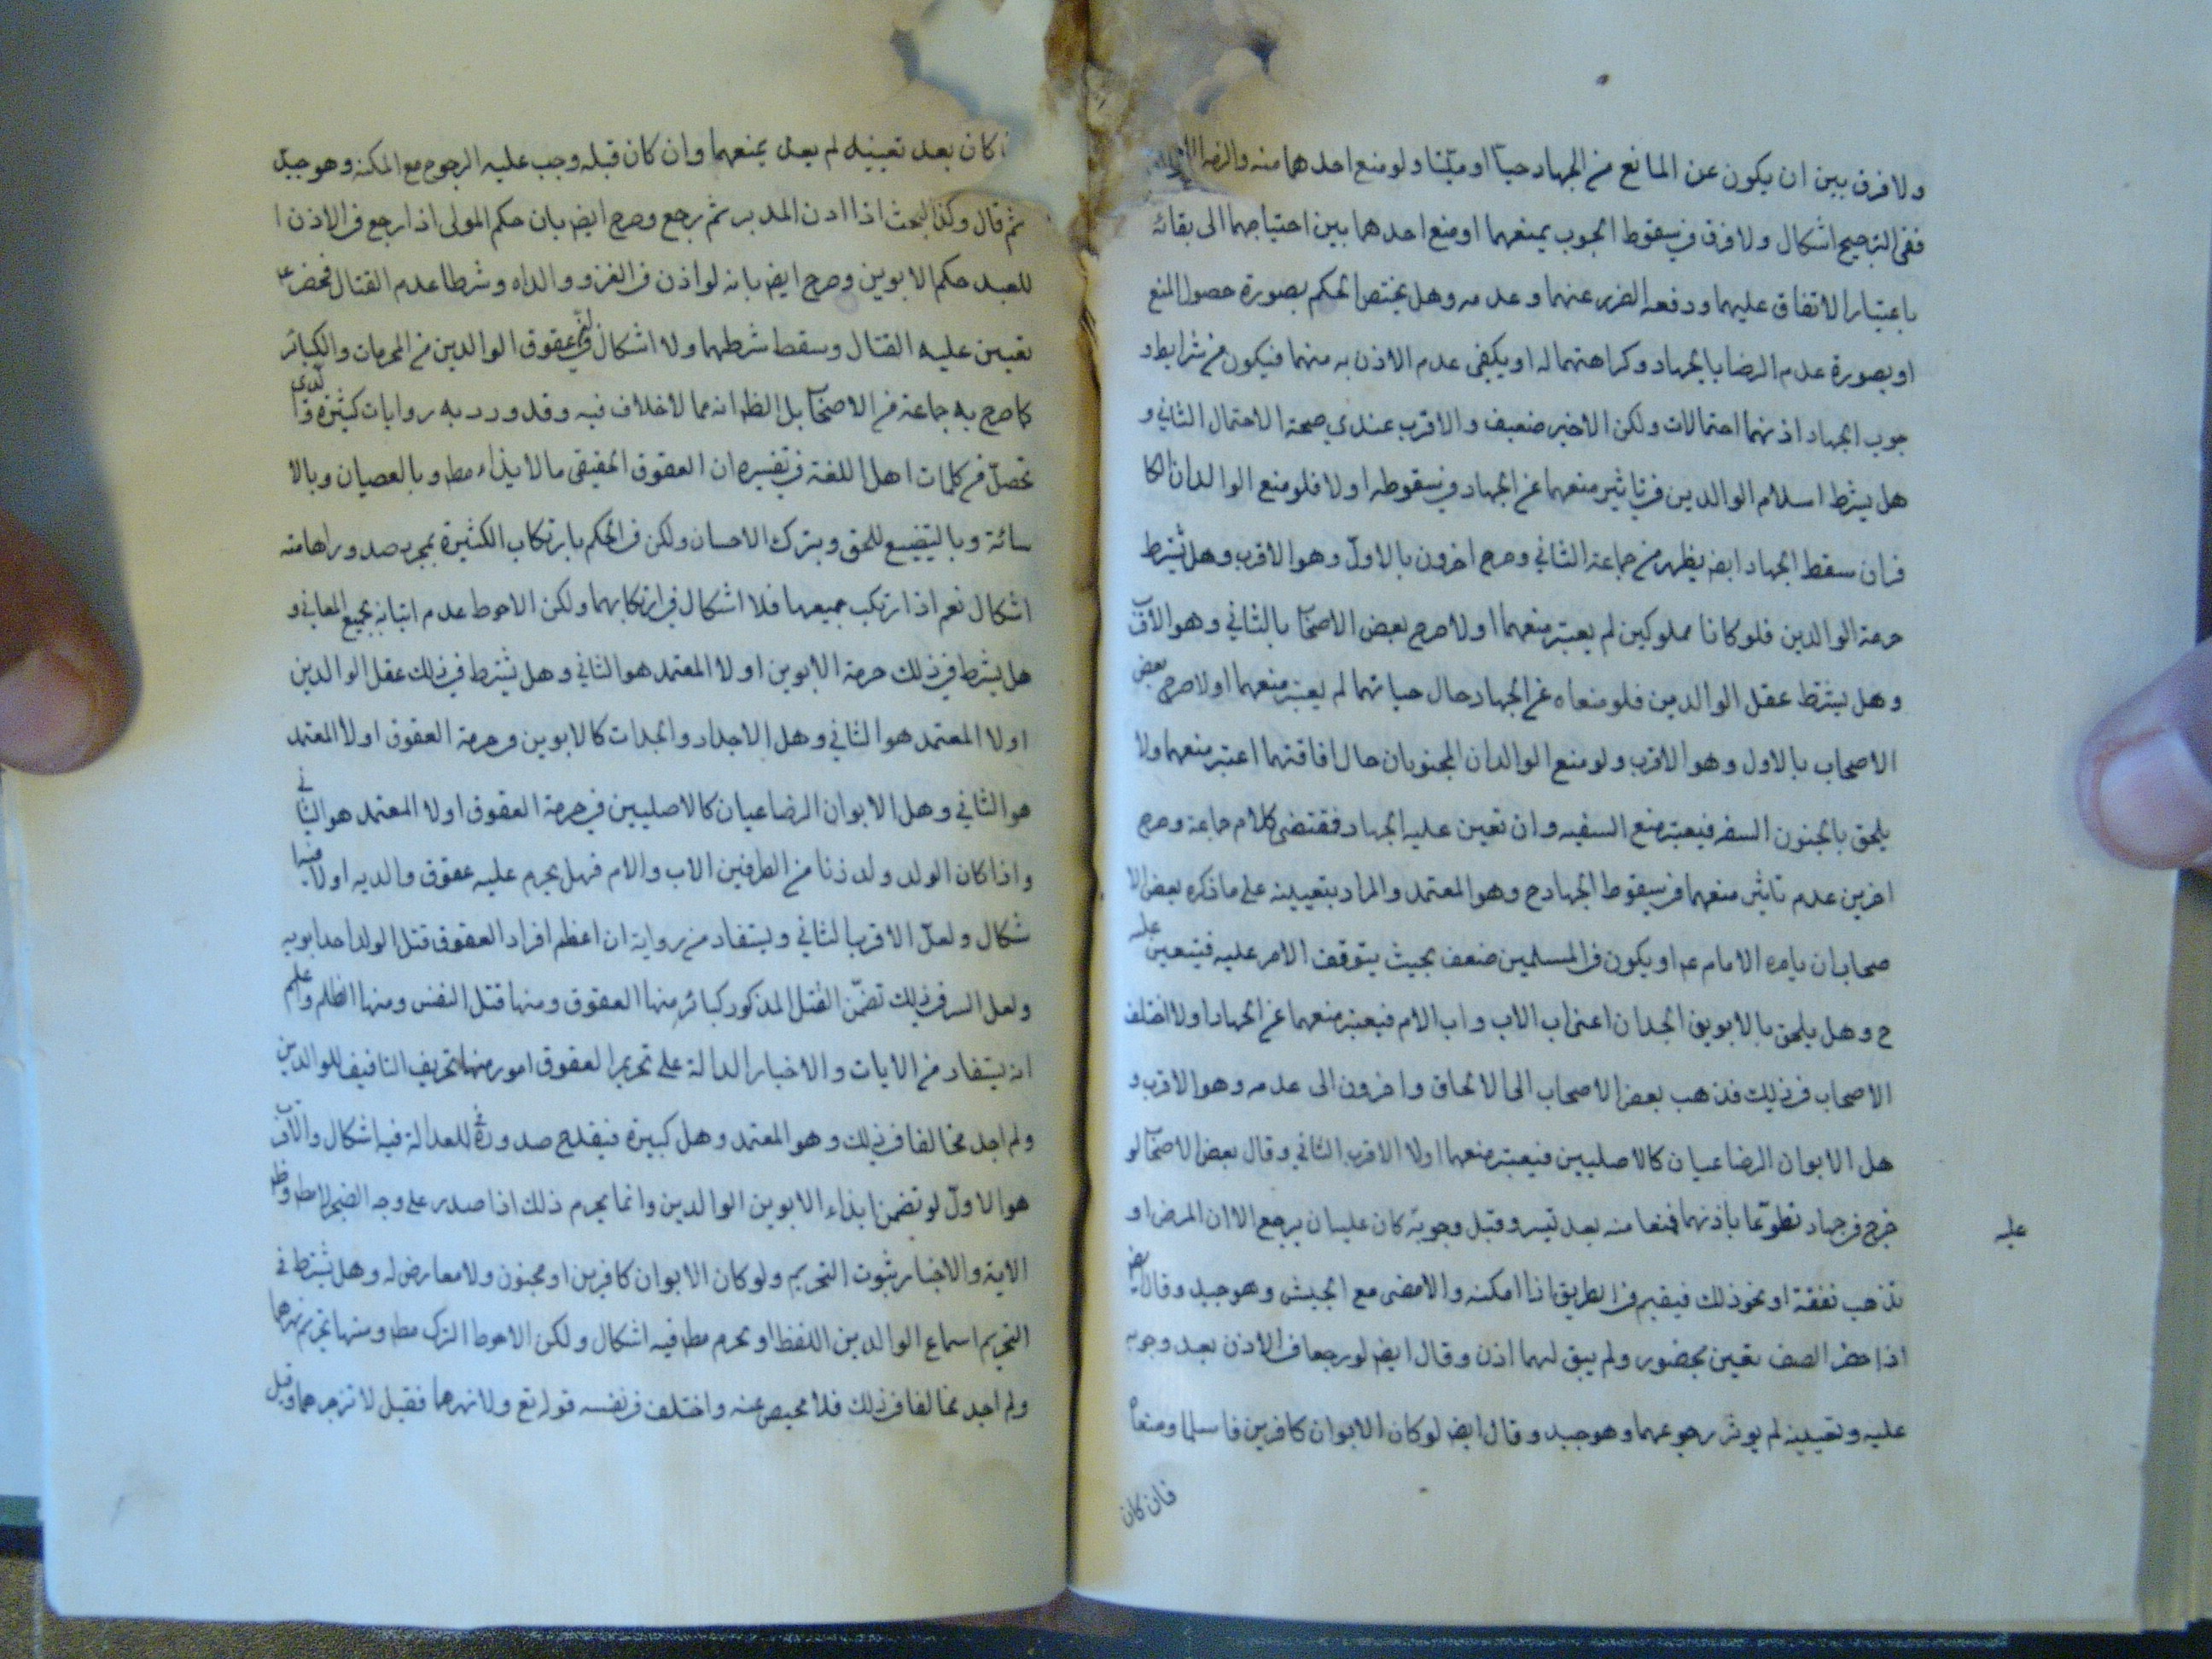 ولا فرق بين ان يكون عن المانع من الجهاد حيا او ميتا ولو منع احدهما منه والزمه الاخر
ففي الترجيح اشكال ولا فرق في سقوط الجوب بمنعهما او منع احدهما بين احتياجهما الى بقائه
باعتبار الاتفاق عليهما ودفعه الضرر عنهما وعدمه وهل يختص الحكم بصورة حصول المنع
او بصورة عدم الرضا بالجهاد وكراهتهما له او يكفي عدم الاذن به منهما فيكون من شرايط و
جوب الجهاد اذنهما احتمالات ولكن الاخير ضعيف والاقرب عندي صحة الاحتمال الثاني و
هل يشترط اسلام الوالدين في تاثير منعهما عن الجهاد في سقوطه اولا فلو منع الوالدان الكا
فران سقط الجهاد ايضا يظهر من جماعة الثاني وصرح اخرون بالاول وهو الاقرب وهل يشترط
حرمة الوالدين فلو كانا مملوكين لم يعتبر منعهما اولا صرح بعض الاصحاب بالثاني وهو الاقرب
وهل يشترط عقل الوالدين فلو منعاه عن الجهاد حال حياتهما لم يعتبر منعهما اولا صرح بعض
الاصحاب بالاول وهو الاقرب ولو منع الوالدان المجنونان حال افاقتهما اعتبر منعهما ولا
يلحق بالجنون السفه فيعتبر منع السفيه وان تعين عليه الجهاد فمقتضى كلام جماعة وصرح
اخرين عدم تاثير منعهما في سقوط الجهاد ح وهو المعتمد والمراد بتعيينه على ما ذكره بعض الا
صحاب ان يامره الامام عم او يكون في المسلمين ضعف بحيث يتوقف الامر عليه فيتعين عليه
ح وهل يلحق بالابوين الجدان اعني اب الاب واب الام فيعتبر منعهما عن الجهاد اولا اختلف
الاصحاب في ذلك فذهب بعض الاصحاب الى الالحاق واخرون الى عدمه وهو الاقرب و
هل الابوان الرضاعيان كالاصليين فيعتبر منعهما اولا الاقرب الثاني وقال بعض الاصحاب لو
خرج في جهاد تطوعا باذنهما فمنعا منه بعد سيره وقبل وجوبه كان عليه ان يرجع الا ان المرض او
عليه
تذهب نفقة او نحو ذلك فيقيم في الطريق اذا امكنه والا مضى مع الجيش وهو جيد وقال ايض
اذا حضر الصف تعين بحضوره ولم يبق لهما اذن وقال ايض لو رجعا في الاذن بعد وجوبه
عليه وتعيينه لم يوثر رجوعهما وهو جيد وقال ايض لو كان الابوان كافرين فاسلما ومنعاه
فان كان
كان بعد تعيينه لم يعد بمنعهما وان كان قبله وجب عليه الرجوع مع المكنة وهو جيد
ثم قال وكذا البحث اذا اذن المدبر ثم رجع وصرح ايض بان حكم المولى اذا رجع في الاذن ا
للعبد حكم الابوين وصرح ايض بانه لو اذن في الغزو والداه وشرطا عدم القتال فحضر
تعين عليه القتال وسقط شرطهما ولا اشكال في ان عقوق الوالدين من المحرمات والكبائر
كما صرح به جماعة من الاصحاب بل الظ انه مما لا خلاف فيه وقد ورد به روايات كثيرة و
تحصل من كلمات اهل اللغة في تفسيره ان العقوق الحقيقي مالايذاء مط وبالعصيان وبالا
سائة وبالتضييع للحق وبترك الاحسان ولكن في الحكم بارتكاب الكثيرة بمجرد صدور احدها منه
اشكال نعم اذا ارتكب جميعها فلا اشكال في ارتكابهما ولكن الاحوط عدم اتيانه بجميع المعاني و
هل يشترط في ذلك حرمة الابوين اولا المعتمد هو الثاني وهل يشترط في ذلك عقل الوالدين
اولا المعتمد هو الثاني وهل الاجداد والجدات كالابوين في حرمة العقوق اولا المعتمد
هو الثاني وهل الابوان الرضاعيان كالاصليين في حرمة العقوق اولا المعتمد هو الثاني
واذا كان الولد ولد زنا من الطرفين الاب والام فهل يحرم عليه عقوق والديه اولا فيه ا
شكال ولعل الاقرب الثاني ويستفاد من رواية ان اعظم افراد العقوق قتل الولد احد ابويه
ولعل السر في ذلك تضمن القتل المذكور كبائر منها العقوق ومنها قتل النفس ومنها الظلم واعلم
انه يستفاد من الايات والاخبار الدالة على تحريم العقوق امور منها تحريم التافيف للوالدين
ولم اجد مخالفا في ذلك وهو المعتمد وهل كبيرة فيقدح صدوره للعدالة فيه اشكال والاقرب
هو الاول لو تضمن ايذاء الابوين الوالدين وانما يحرم ذلك اذا صدر على وجه الضجر لا مط وظ
الاية والاخبار ثبوت التحريم ولو كان الابوان كافرين او مجنون ولا معارض له وهل يشترط في
التحريم اسماع الوالدين اللفظ او يحرم مط فيه اشكال ولكن الاحوط الترك مط ومنها تحريم نهرهما
ولم اجد مخالفا في ذلك فلا محيص عنه واختلف في تفسير قوله تع ولا تنهرهما فقيل لا تزجرهما وقيل